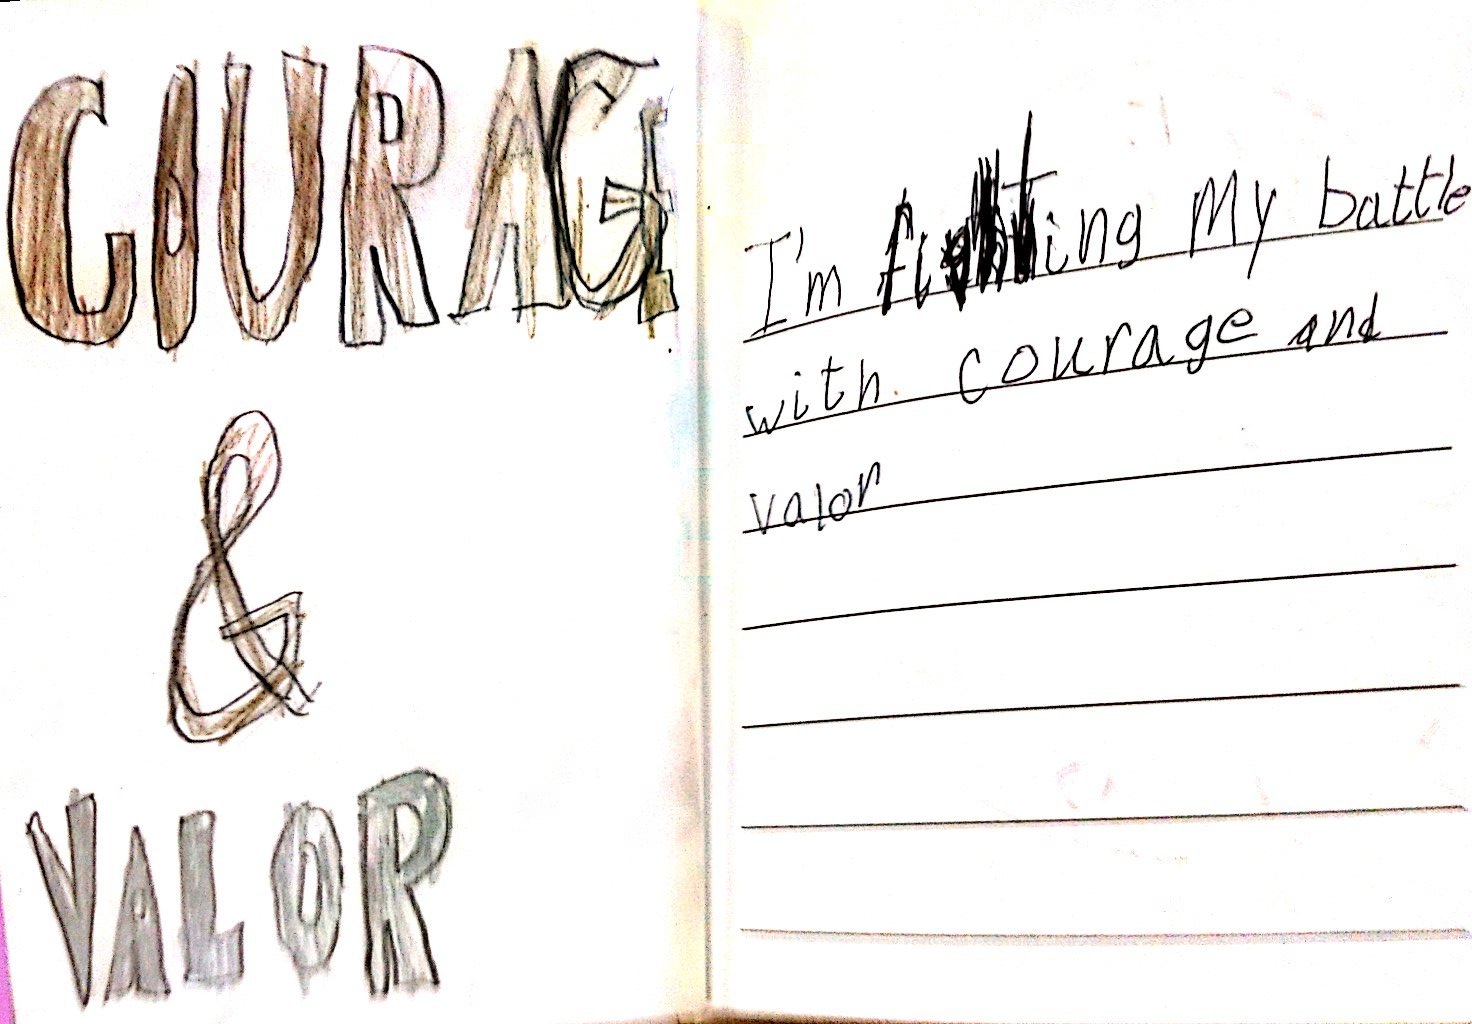 COURAGE
&
VALOR
I'm fighting My battle
with courage and
valor